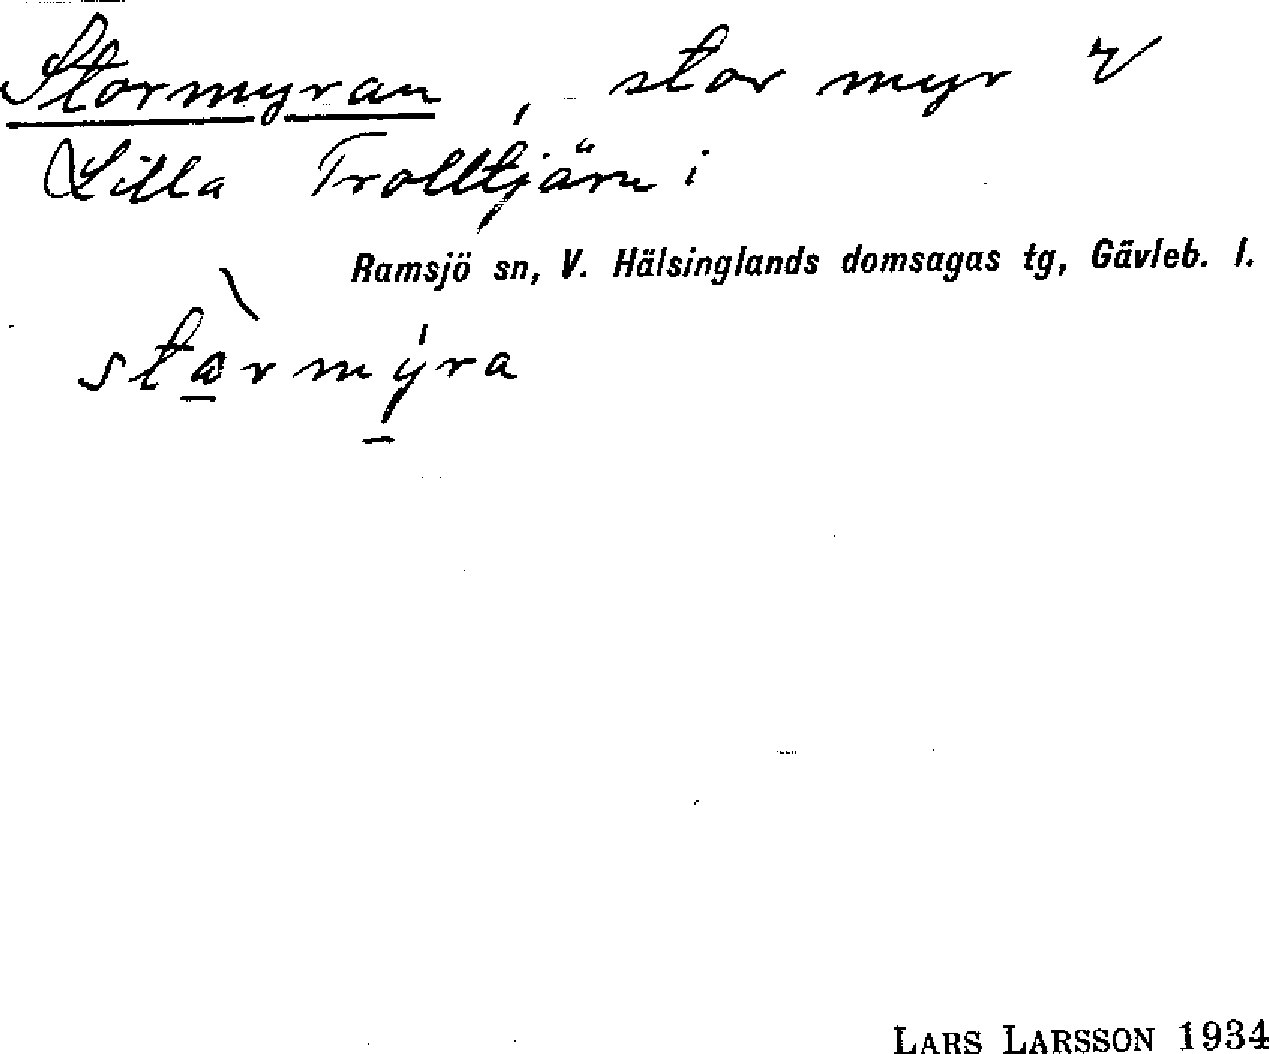 Stormyran, stor myr V
Lilla Trolltjärn i
Ramsjö sn, V. Hälsinglands domsagas tg, Gävleb. l.
LARS LARSSON 1934